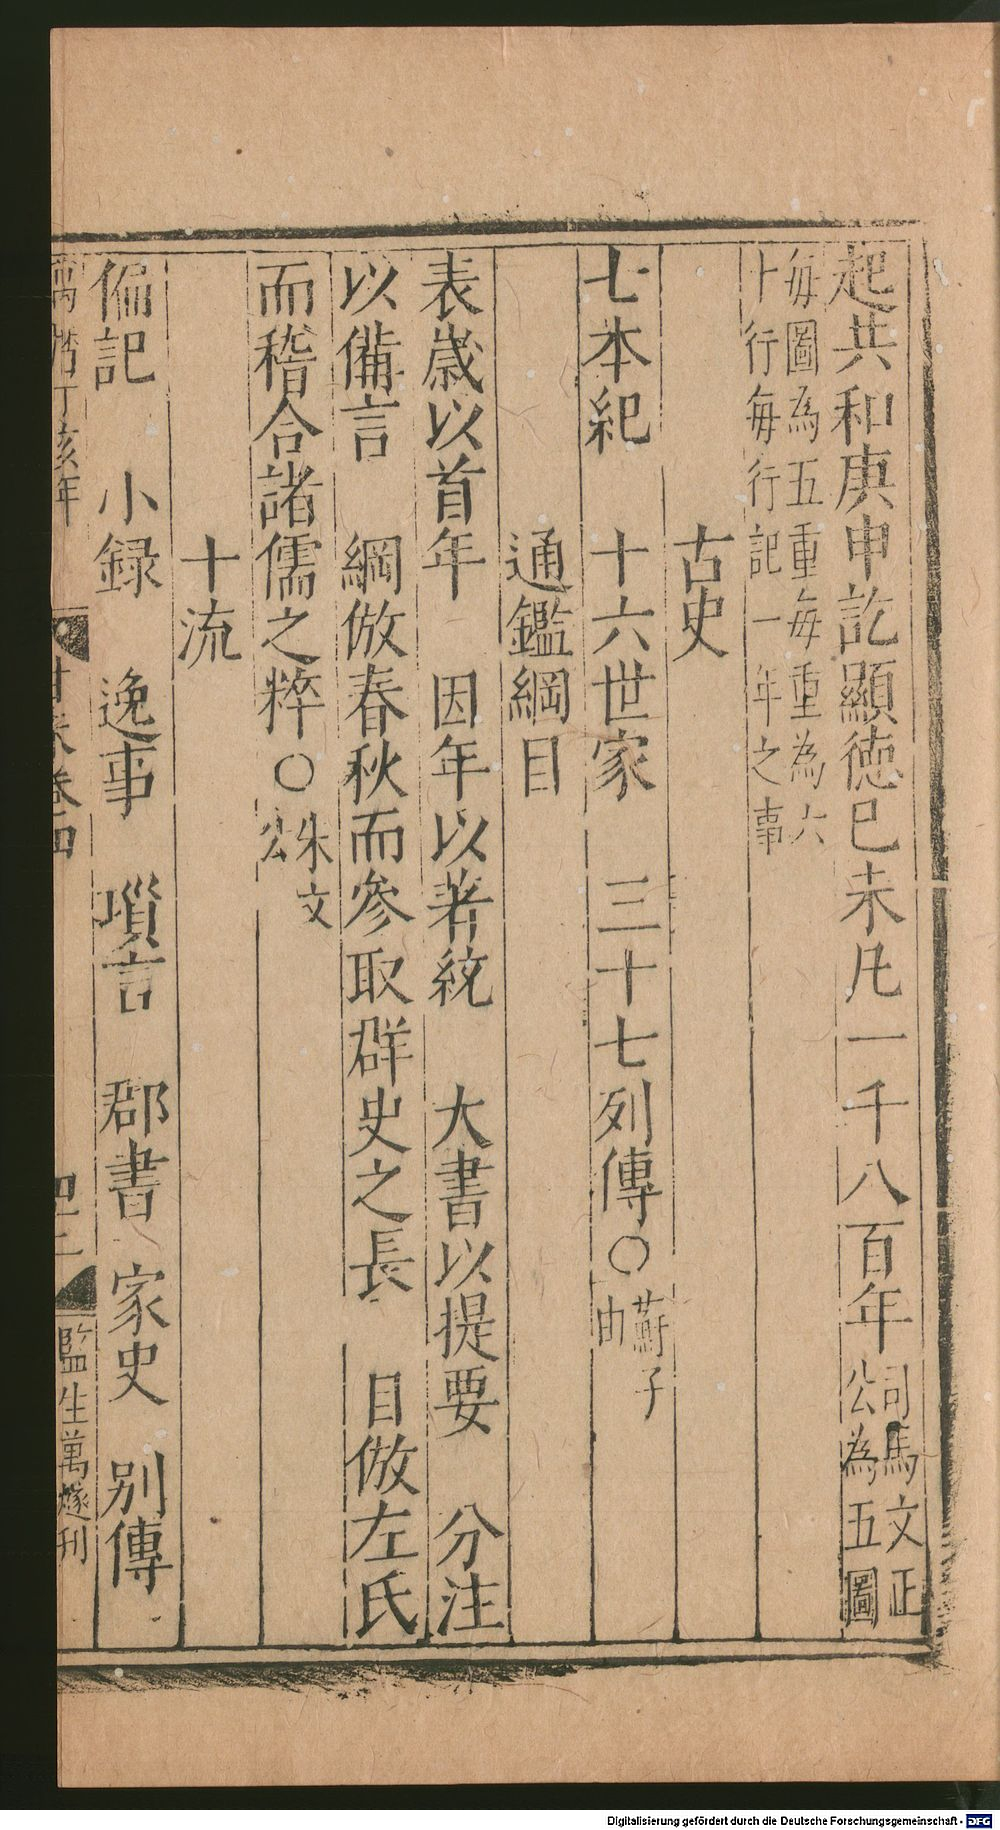 起共和庚申訖顯德已未凡一千八百年司馬文正公為五圖
每圖為五重每重為六十行每行記一年之事
古史
七本紀　十六世家　三十七列傳○蘇子由
通鑑綱目
表歲以首年　因年以著統　大書以提要　分注
以備言　綱倣春秋而參取群史之長　目倣左氏
而稽合諸儒之粹○朱文公
十流
偏記　小録　逸事　瑣言　郡書　家史　別傳
丁亥年　卷四　監生萬燧刊
Digitalisierung gefördert durch die Deutsche Forschungsgemeinschaft - DFG